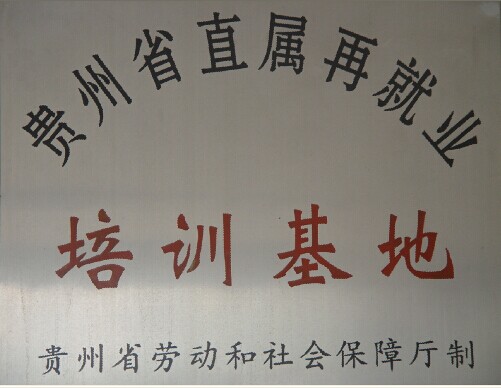 贵州省直属再就业
培训基地
贵州省劳动和社会保障厅制